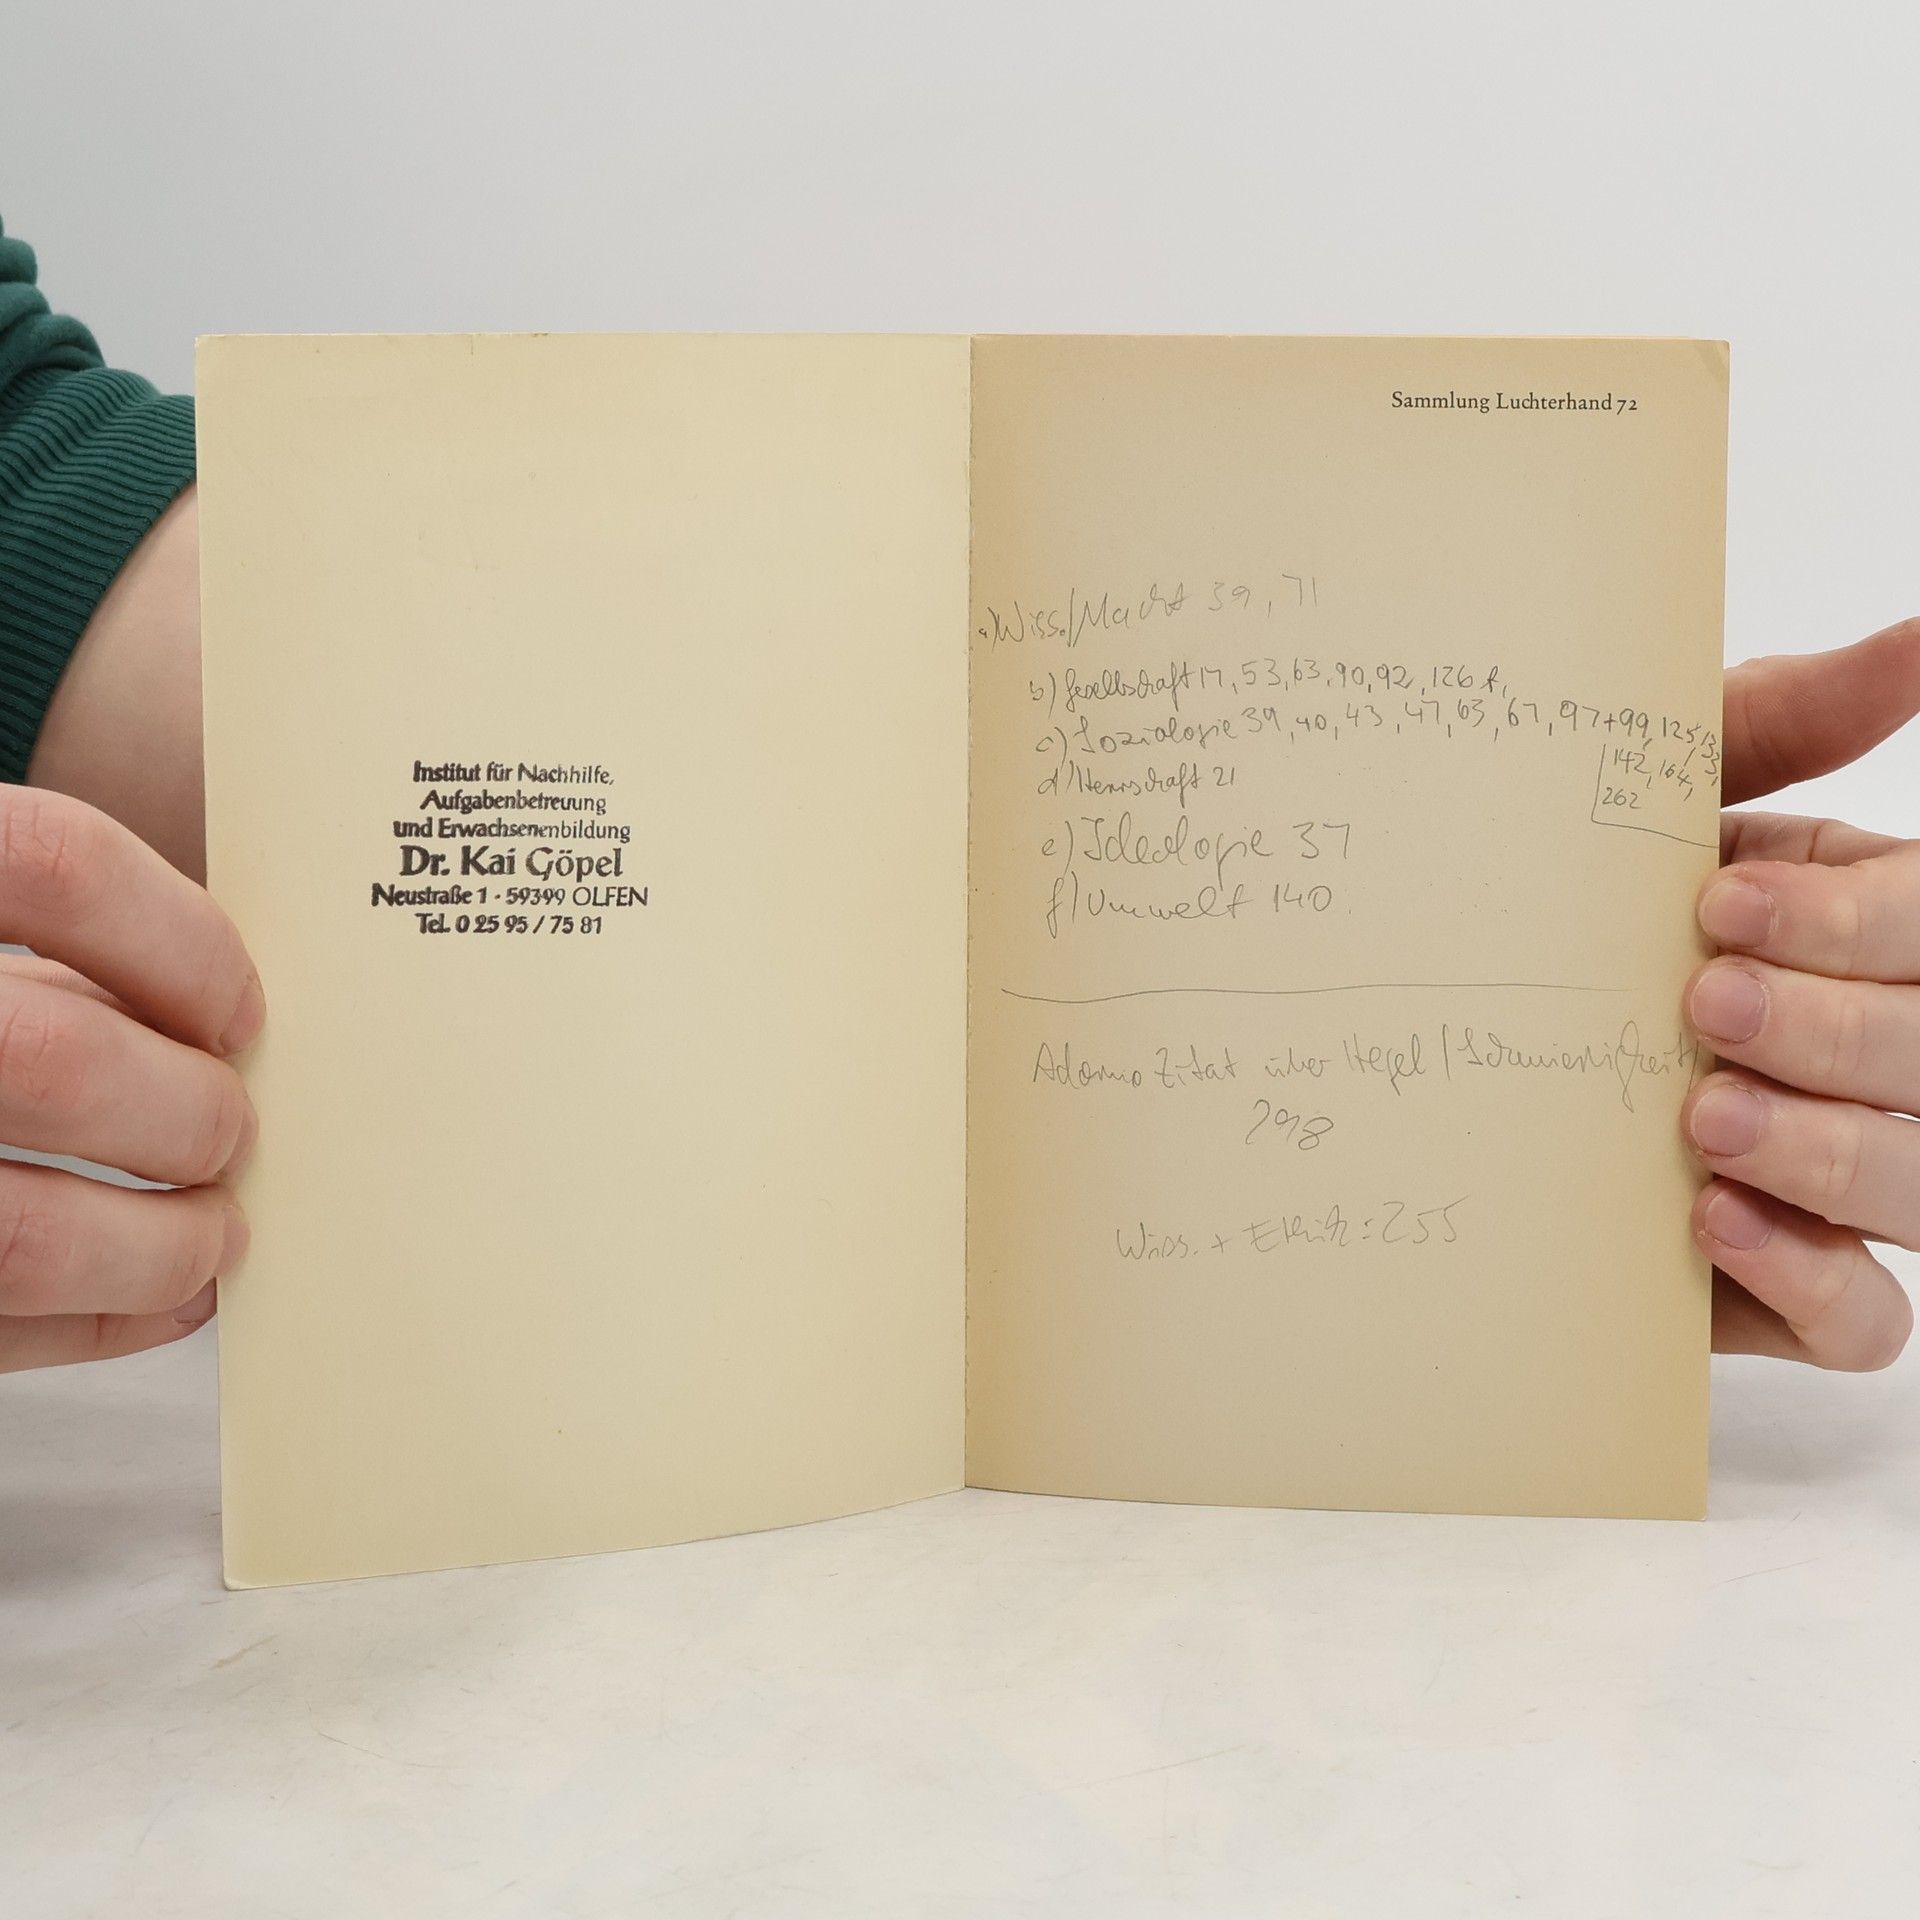 Institut für Nachhilfe,
Aufgabenbetreuung
und Erwachsenenbildung
Dr. Kai Göpel
Neustraße 1 · 59399 OLFEN
Tel. 0 25 95 / 75 81
Sammlung Luchterhand 72
a) Wiss./Macht 39, 71
b) Gesellschaft 17, 53, 63, 90, 92, 126 f,
c) Soziologie 39, 40, 43, 47, 63, 67, 97+99, 125, 133,
142, 164,
262
d) Herrschaft 21
e) Ideologie 37
f) Umwelt 140
Adorno Zitat über Hegel (Schwierigkeit)
298
Wiss. + Ethik: 255